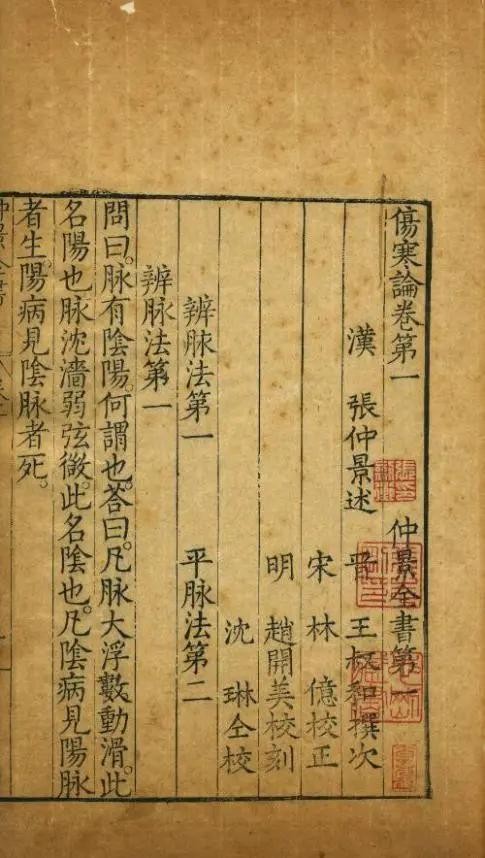 傷寒論卷第一 仲景全書第一
漢 張仲景述 晉 王叔和撰次
宋 林 億校正
明 趙開美校刻
沈 琳仝校
辨脉法第一 平脉法第二
辨脉法第一
問曰。脉有陰陽。何謂也。荅曰。凡脉大浮數動滑。此
名陽也。脉沈濇弱弦微。此名陰也。凡陰病見陽脉
者生。陽病見陰脉者死。
仲景全書